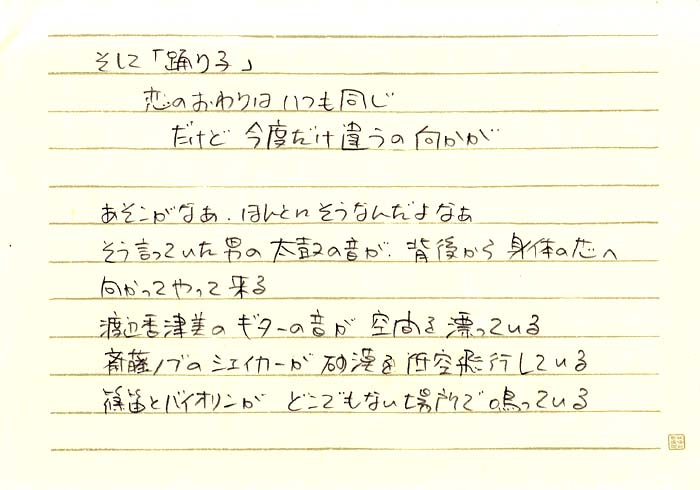 そして「踊り子」
恋のおわりは いつも同じ
だけど 今度だけ違うの 何かが
あそこがなあ．ほんとに そうなんだよなあ
そう言っていた男の 太鼓の音が．背後から 身体の芯へ
向かってやって来る
渡辺香津美のギターの音が 空間を 漂っている
斎藤ノブのシェイカーが 砂漠を 低空飛行している
篠笛とバイオリンが どこでもない場所で 鳴っている